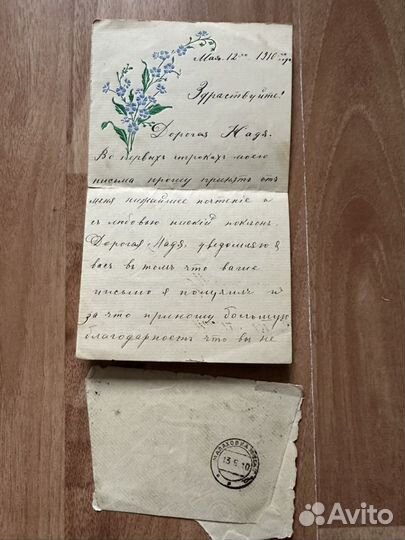 Мая. 12го 1910 года
Здраствуйте!
Дорогая Надя.
Во первыхъ строкахъ моего
письма прошу принять отъ
меня нижайшее почтение и
съ любовью ниский поклонъ.
Дорогая, Надя, уведомляю я
васъ въ томъ что ваше
письмо я получилъ и
за что приношу большую
благодарность что вы не
МАЛАХОВКА
13 5 10
Avito